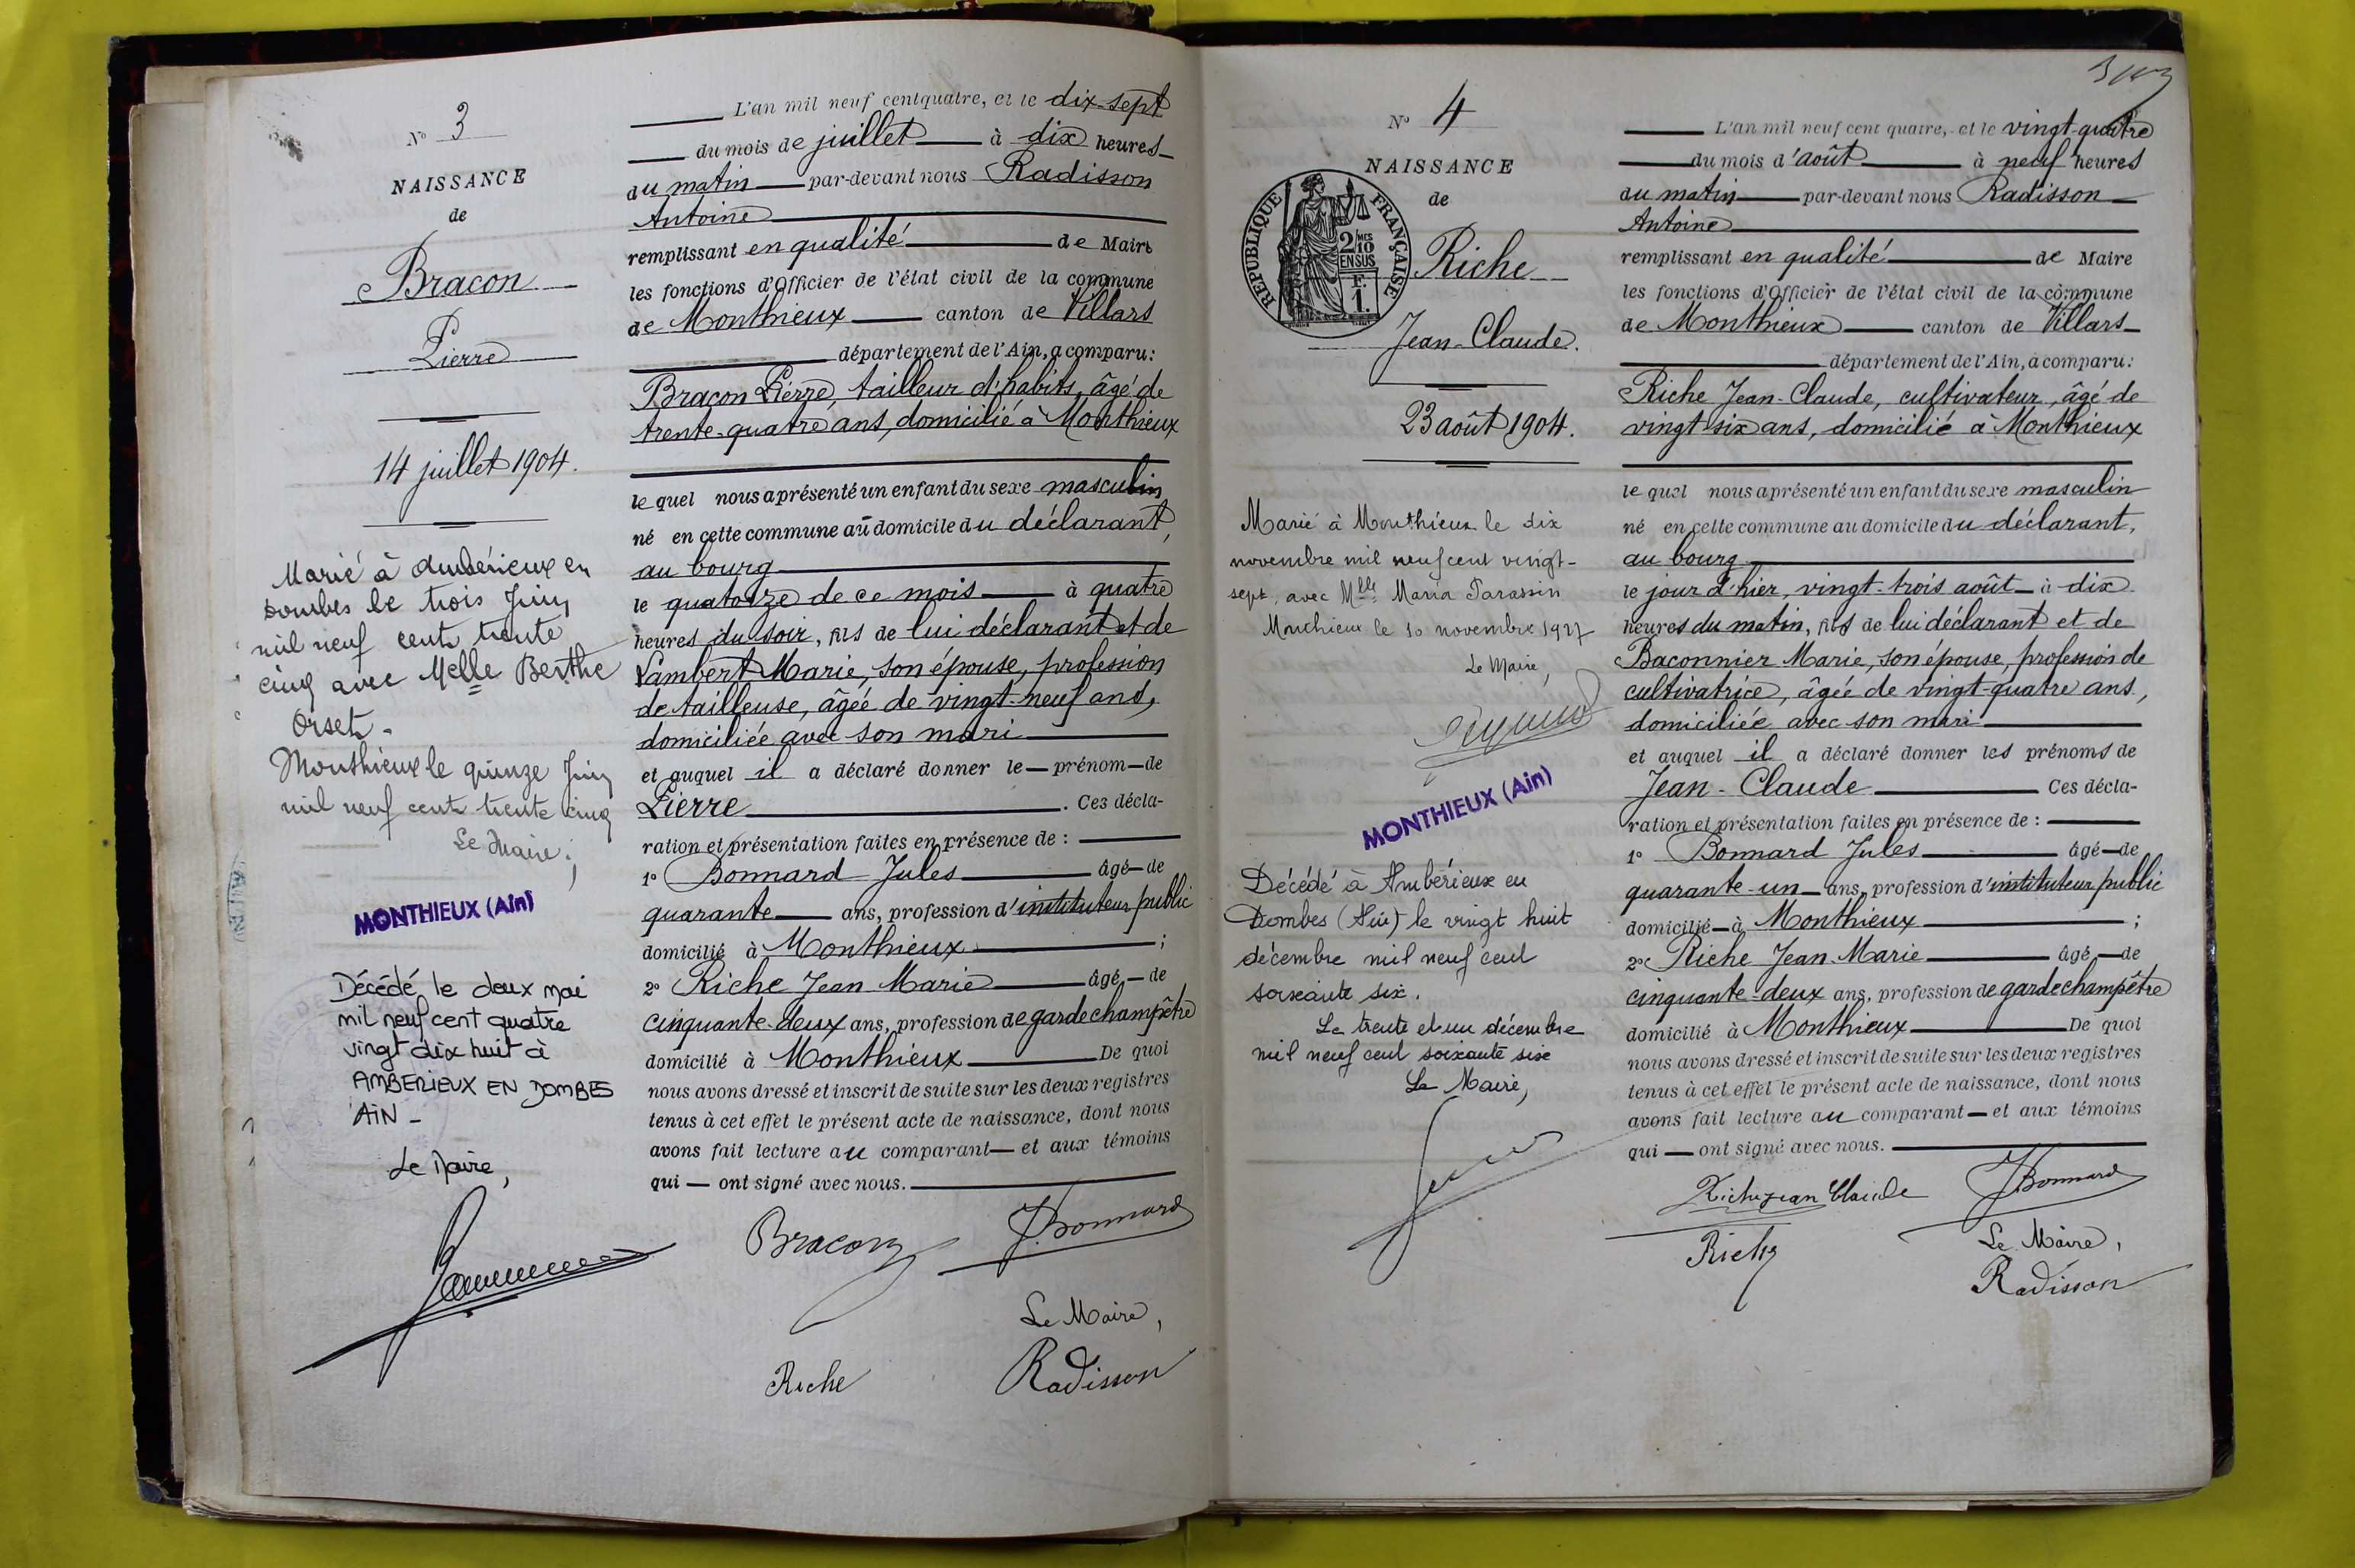 Nº 3
NAISSANCE
de
Bracon
Pierre
14 juillet 1904.
Marié à Ambérieux en
Dombes le trois Juin
mil neuf cent trente
cinq avec Melle Berthe
Orset.
Monthieux le quinze Juin
mil neuf cent trente cinq
Le Maire,
MONTHIEUX (Ain)
Décédé le deux mai
mil neuf cent quatre
vingt dix huit à
AMBERIEUX EN DOMBES
AIN -
Le Maire,
L'an mil neuf cent quatre, et le dix-sept
du mois de juillet à dix heures
du matin par-devant nous Radisson
Antoine
remplissant en qualité de Maire
les fonctions d'Officier de l'état civil de la commune
de Monthieux canton de Villars
département de l'Ain, a comparu:
Bracon Pierre, tailleur d'habits, âgé de
trente-quatre ans, domicilié à Monthieux
lequel nous a présenté un enfant du sexe masculin
né en cette commune au domicile du déclarant,
au bourg
le quatorze de ce mois à quatre
heures du soir, fils de lui déclarant et de
Lambert Marie, son épouse, profession
de tailleuse, âgée de vingt-neuf ans,
domiciliée avec son mari
et auquel il a déclaré donner le prénom de
Pierre. Ces décla-
ration et présentation faites en présence de :
1º Bonnard Jules âgé de
quarante ans, profession d'instituteur public
domicilié à Monthieux ;
2º Riche Jean Marie âgé de
cinquante-deux ans, profession de garde champêtre
domicilié à Monthieux De quoi
nous avons dressé et inscrit de suite sur les deux registres
tenus à cet effet le présent acte de naissance, dont nous
avons fait lecture au comparant et aux témoins
qui ont signé avec nous.
Bracon J. Bonnard
Le Maire,
Riche Radisson
Nº 4
NAISSANCE
de
REPUBLIQUE FRANÇAISE
2/10 MES
EN SUS
F.
1.
Riche
Jean-Claude.
23 août 1904.
Marié à Monthieux le dix
novembre mil neuf cent vingt-
sept, avec Mlle Maria Parassin
Monthieux le 10 novembre 1927
Le Maire,
MONTHIEUX (Ain)
Décédé à Ambérieux en
Dombes (Ain) le vingt huit
décembre mil neuf cent
soixante six.
Le trente et un décembre
mil neuf cent soixante six
Le Maire,
L'an mil neuf cent quatre, et le vingt-quatre
du mois d'août à neuf heures
du matin par-devant nous Radisson
Antoine
remplissant en qualité de Maire
les fonctions d'Officier de l'état civil de la commune
de Monthieux canton de Villars
département de l'Ain, a comparu:
Riche Jean-Claude, cultivateur, âgé de
vingt-six ans, domicilié à Monthieux
lequel nous a présenté un enfant du sexe masculin
né en cette commune au domicile du déclarant,
au bourg
le jour d'hier, vingt-trois août à dix
heures du matin, fils de lui déclarant et de
Baconnier Marie, son épouse, profession de
cultivatrice, âgée de vingt-quatre ans,
domiciliée avec son mari
et auquel il a déclaré donner les prénoms de
Jean-Claude Ces décla-
ration et présentation faites en présence de :
1º Bonnard Jules âgé de
quarante-un ans, profession d'instituteur public
domicilié à Monthieux ;
2º Riche Jean-Marie âgé de
cinquante-deux ans, profession de garde champêtre
domicilié à Monthieux De quoi
nous avons dressé et inscrit de suite sur les deux registres
tenus à cet effet le présent acte de naissance, dont nous
avons fait lecture au comparant et aux témoins
qui ont signé avec nous.
Riche Jean Claude J. Bonnard
Riche Le Maire,
Radisson